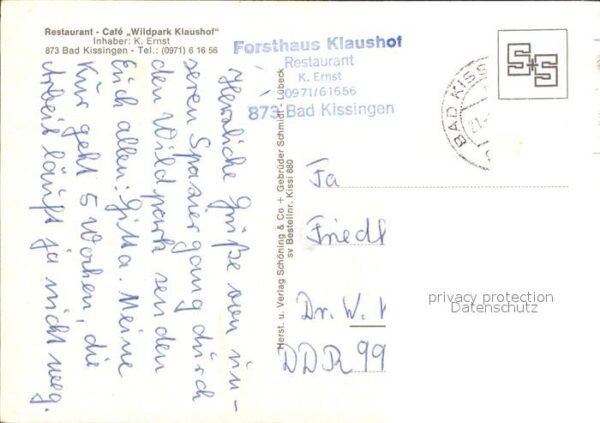 Restaurant - Café „Wildpark Klaushof"
Inhaber: K. Ernst
873 Bad Kissingen - Tel.: (0971) 6 16 56
Forsthaus Klaushof
Restaurant
K. Ernst
0971/61656
873 Bad Kissingen
Herzliche Grüße von un-
seren Spaziergang durch
den Wildpark senden
Euch allen! Gitta. Meine
Kur geht 5 Wochen, die
Arbeit läuft ja nicht weg.
Herst. u. Verlag Schöning & Co + Gebrüder Schmidt, Lübeck
sv Bestellnr. Kissi 880
S+S
BAD KISS
Fa
Friedl
Dr. W.
DDR 99
privacy protection
Datenschutz